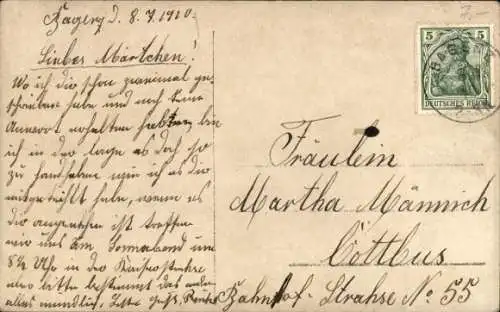 d. 8.7.1910.
Liebes Märtchen!
Wo ich dir schon zweimal ge-
schrieben habe und noch keine
Antwort erhalten habe, bin
ich in der Lage es doch so
zu handhaben wie ich es dir
mitgeteilt habe, wenn es
dir angenehm ist treffen
wir uns am Sonnabend um
8½ Uhr in der
also bitte bestimmt das andre
alles mündlich,
Fräulein
Martha Männich
Cottbus
Bahnhof-Strahse No 55
5 5
DEUTSCHES REICH